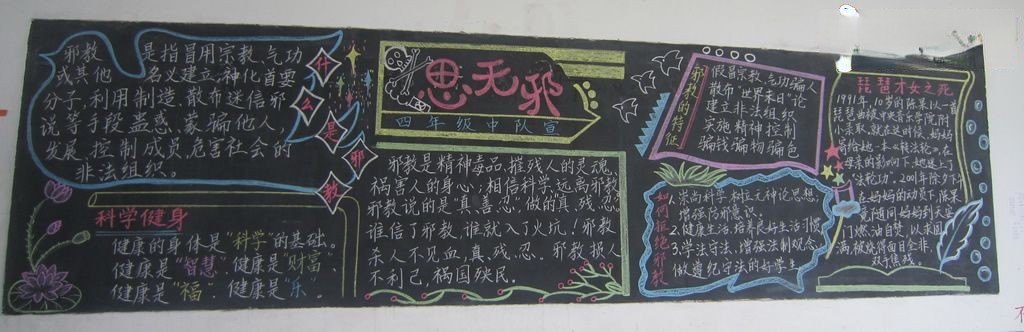 邪教 是指冒用宗教、气功
或其他 名义建立,神化首要
分子,利用制造、散布迷信邪
说等手段蛊惑、蒙骗他人,
发展、控制成员,危害社会的
非法组织。
什么是邪教
科学健身
健康的身体是"科学"的基础。
健康是"智慧",健康是"财富"
健康是"福",健康是"乐"。
思无邪
四年级中队宣
邪教是精神毒品,摧残人的灵魂,
祸害人的身心,相信科学,远离邪教
邪教说的是"真善忍"做的真残忍
谁信了邪教,谁就入了火坑!邪教
杀人不见血,真残忍。邪教损人
不利己,祸国殃民。
邪教的特征
假冒宗教、气功骗人
散布"世界末日"论
建立非法组织
实施精神控制
骗钱骗物骗色
如何拒绝邪教
1.崇尚科学,树立无神论思想,
增强防邪意识。
2.健康生活,培养良好生活习惯
3.学法守法,增强法制观念,
做遵纪守法的好学生
琵琶才女之死
1991年,10岁的陈果以一首
琵琶曲被中央音乐学院附
小录取,就在这时候,妈妈
寄给她一本《转法轮》,在
母亲的影响下,她迷上了
"法轮功"。2001年除夕下
妈妈的动员下,陈果
竟随同妈妈到天安
门燃油自焚,以求圆
满,被烧得面目全非,
双手焦残。